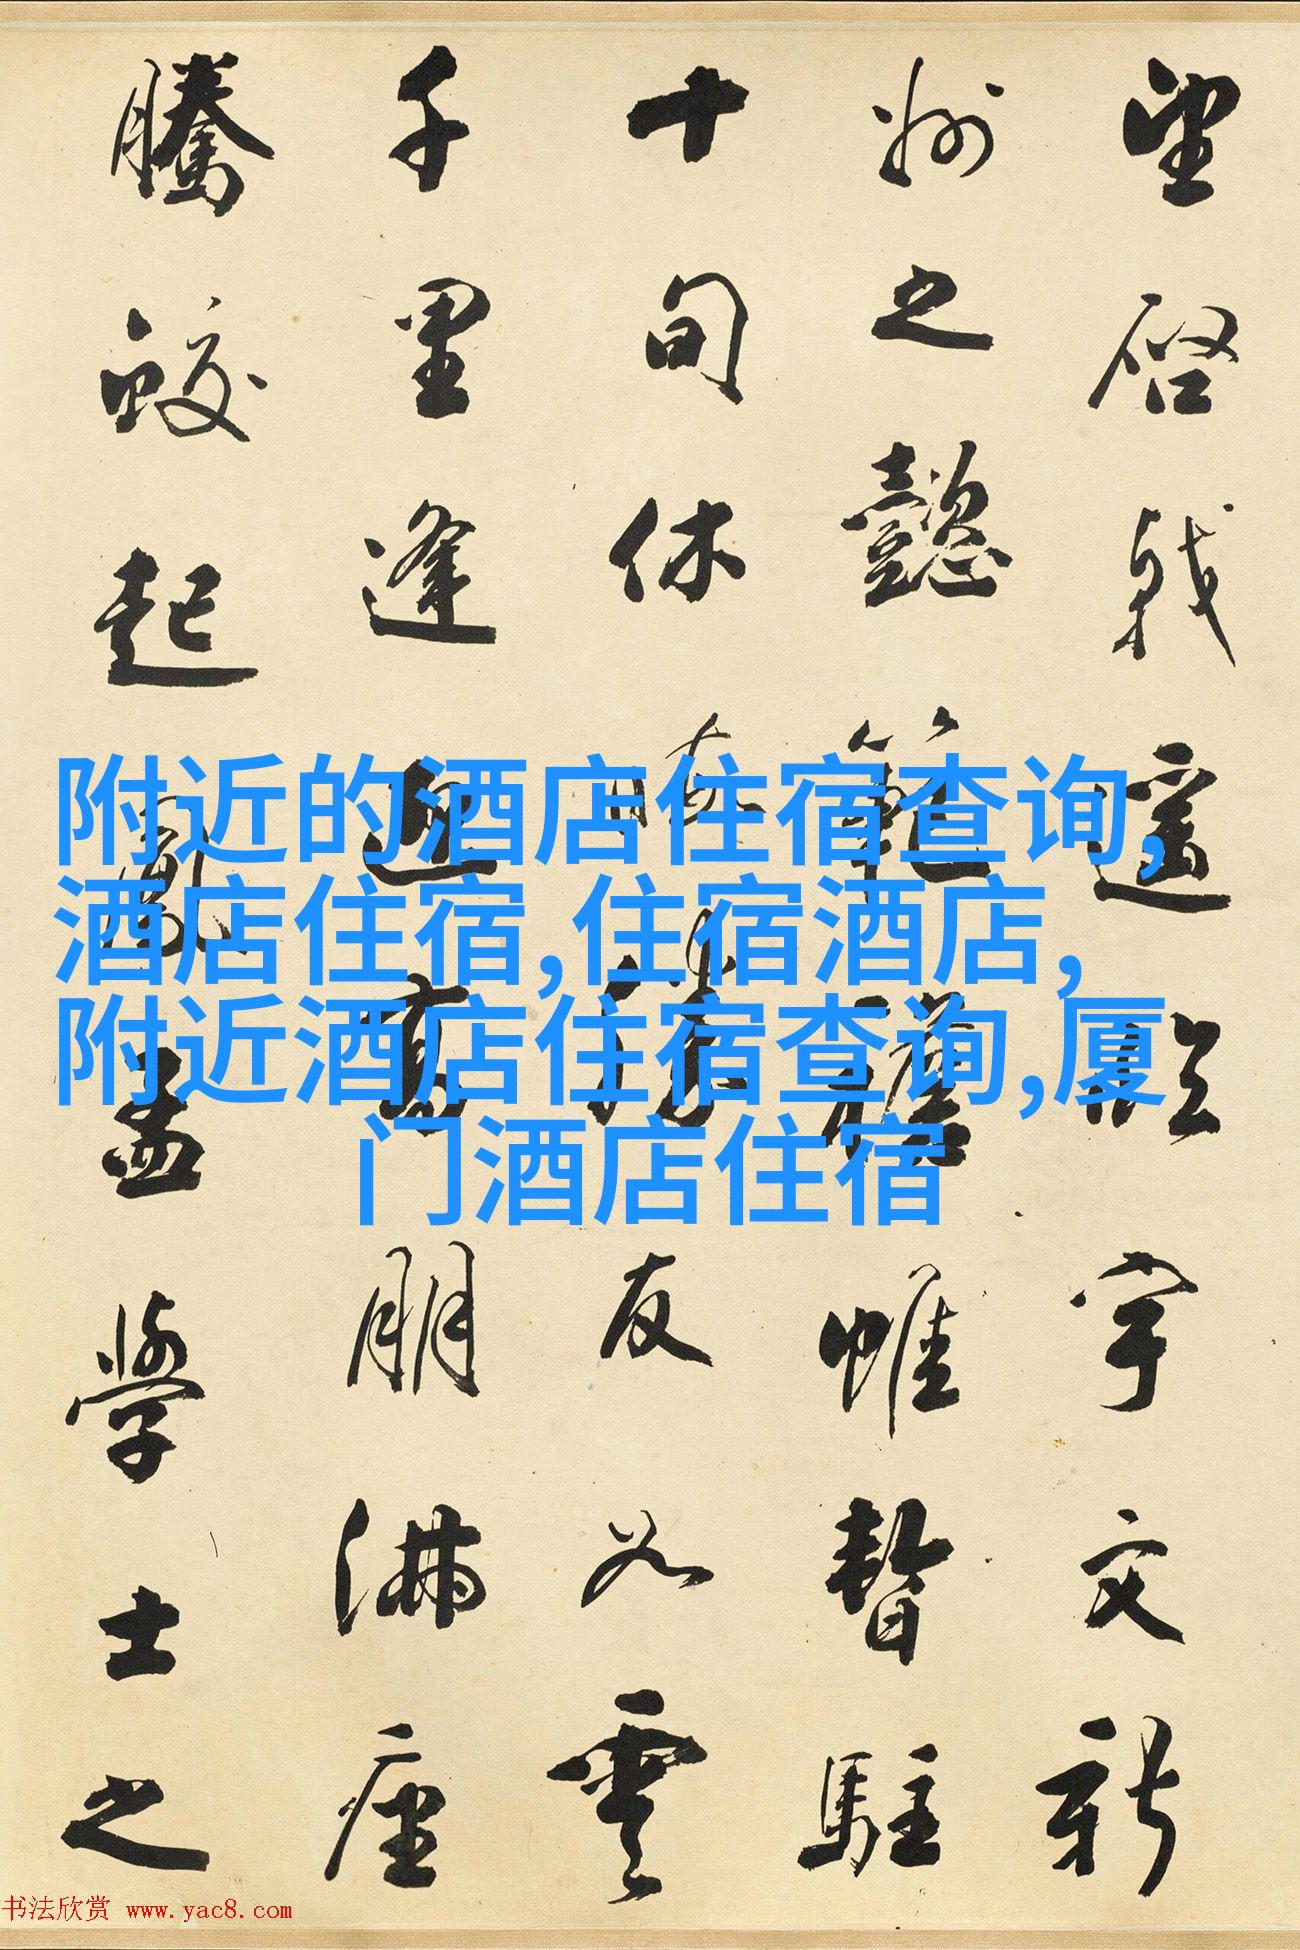 望啓戟遥臨宇文新
州之懿範襜帷暫駐
十旬休暇勝友如雲
千里逢迎高朋滿座
騰蛟起鳳孟學士之
附近的酒店住宿查询,
酒店住宿,住宿酒店,
附近酒店住宿查询,厦
门酒店住宿
书法欣赏 www.yac8.com